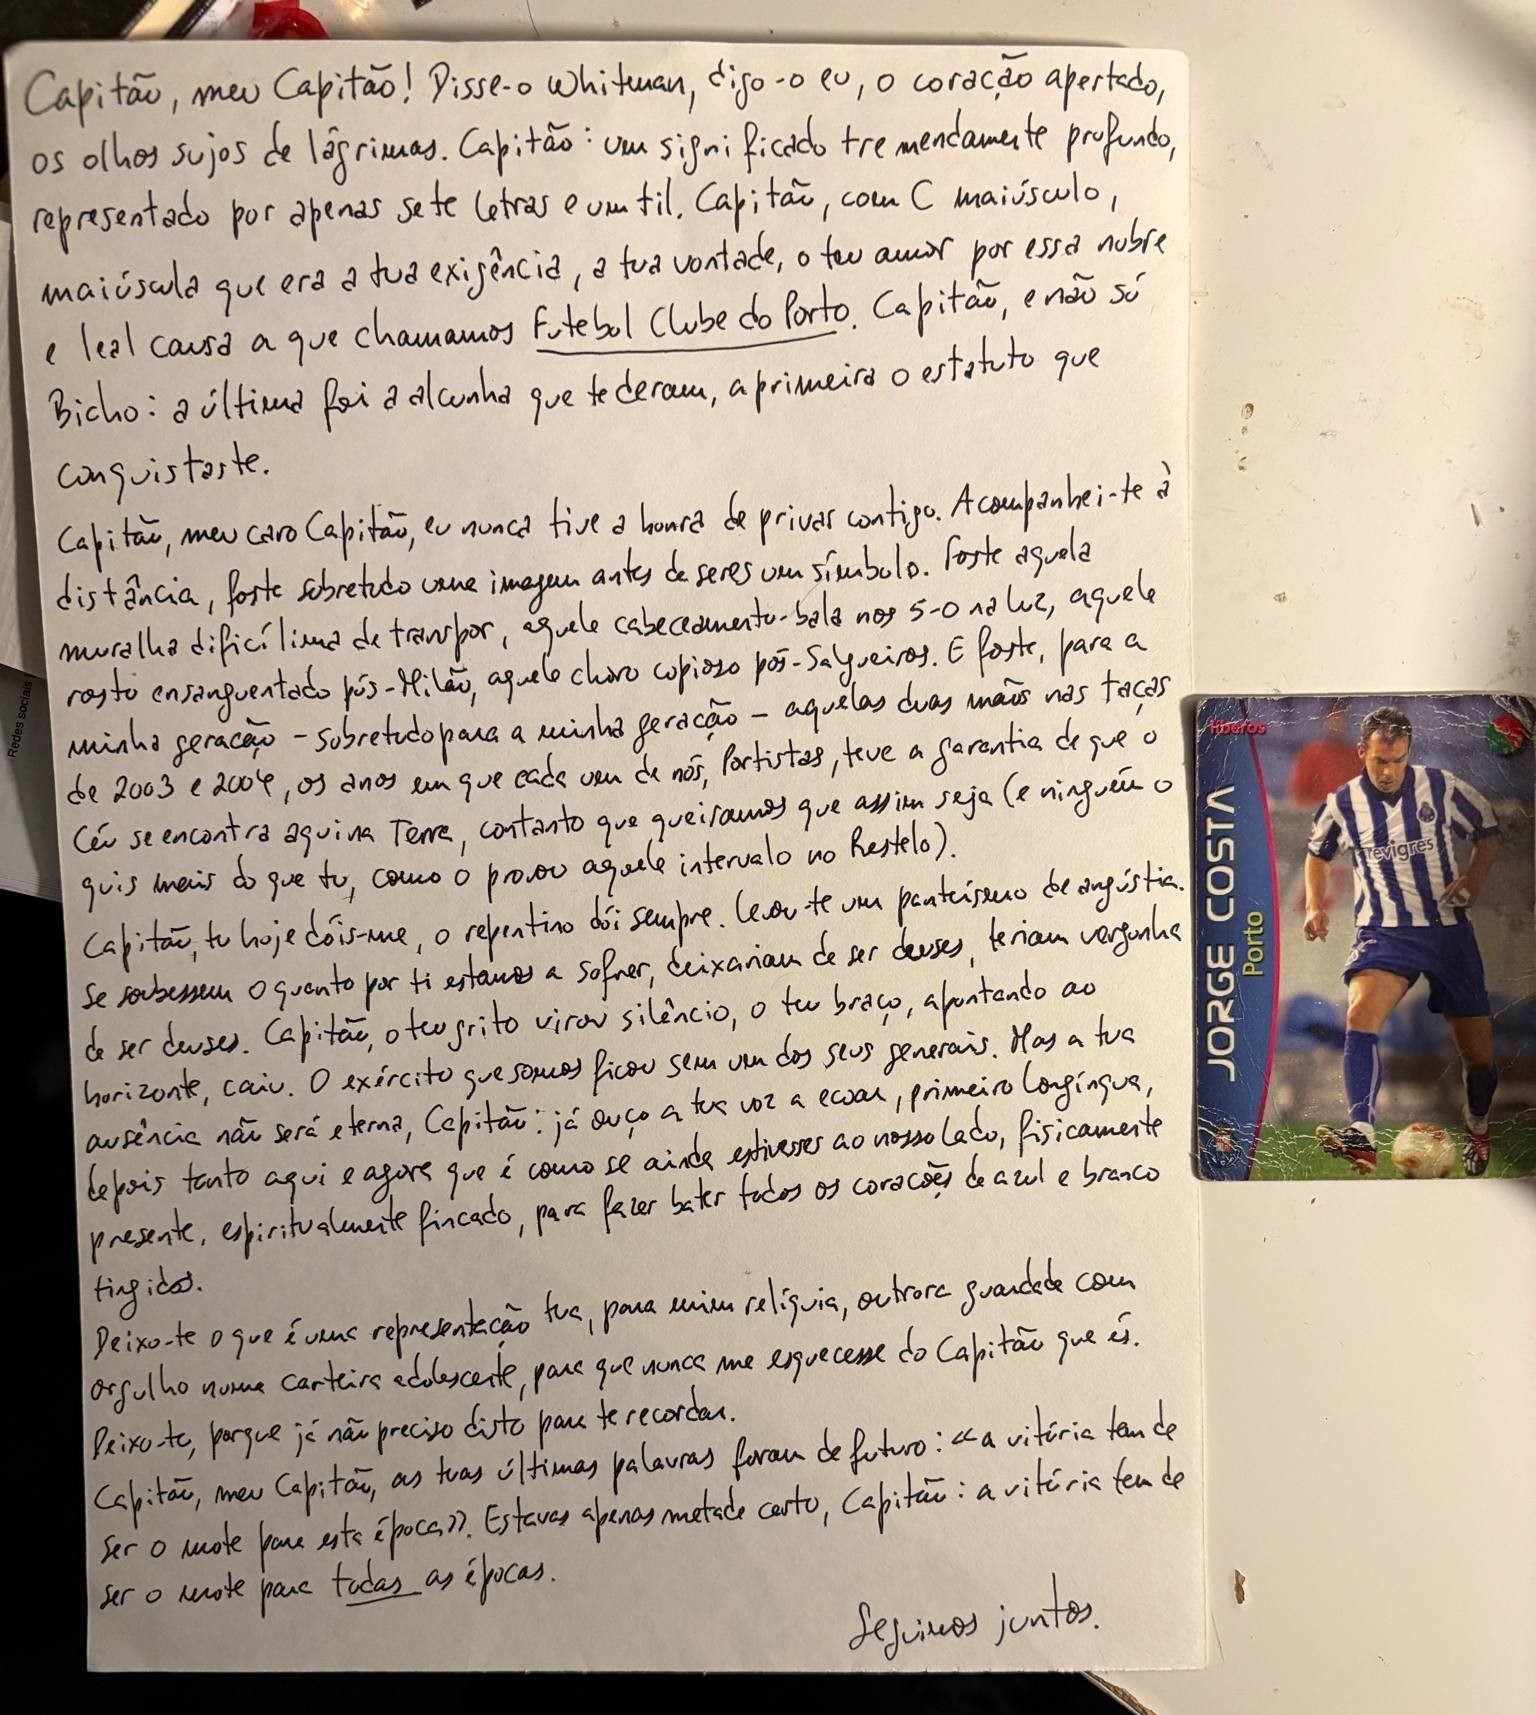 Capitão, meu Capitão! Disse-o Whitman, digo-o eu, o coração apertado,
os olhos sujos de lágrimas. Capitão: um significado tremendamente profundo,
representado por apenas sete letras e um til. Capitão, com C maiúsculo,
maiúscula que era a tua exigência, a tua vontade, o teu amor por essa nobre
e leal causa a que chamamos Futebol Clube do Porto. Capitão, e não só
Bicho: a última foi a alcunha que te deram, a primeira o estatuto que
conquistaste.
Capitão, meu caro Capitão, eu nunca tive a honra de privar contigo. Acompanhei-te à
distância, foste sobretudo uma imagem antes de seres um símbolo. Foste aquela
muralha dificílima de transpor, aquele cabeceamento-bala nos 5-0 na Luz, aquele
rosto ensanguentado pós-Milão, aquele choro copioso pós-Salgueiros. E foste, para a
minha geração - sobretudo para a minha geração - aquelas duas mãos nas taças
de 2003 e 2004, os anos em que cada um de nós, Portistas, teve a garantia de que o
Céu se encontra aqui na Terra, contanto que queiramos que assim seja (e ninguém o
quis mais do que tu, como o provou aquele intervalo no Restelo).
Capitão, tu hoje dóis-me, o repentino dói sempre. Levou-te um panteísmo de angústia.
Se soubessem o quanto por ti estamos a sofrer, deixariam de ser deuses, teriam vergonha
de ser deuses. Capitão, o teu grito virou silêncio, o teu braço, apontando ao
horizonte, caiu. O exército que somos ficou sem um dos seus generais. Mas a tua
ausência não será eterna, Capitão: já ouço a tua voz a ecoar, primeiro longínqua,
depois tanto aqui e agora que é como se ainda estivesses ao nosso lado, fisicamente
presente, espiritualmente fincado, para fazer bater todos os corações de azul e branco
tingidos.
Deixo-te o que é uma representação tua, para mim relíquia, outrora guardada com
orgulho numa carteira adolescente, para que nunca me esquecesse do Capitão que és.
Deixo-te, porque já não preciso disto para te recordar.
Capitão, meu Capitão, as tuas últimas palavras foram de futuro: «a vitória tem de
ser o mote para esta época». Estavas apenas metade certo, Capitão: a vitória tem de
ser o mote para todas as épocas.
Seguimos juntos.
Redes sociais
líberos
JORGE COSTA
Porto
revigres